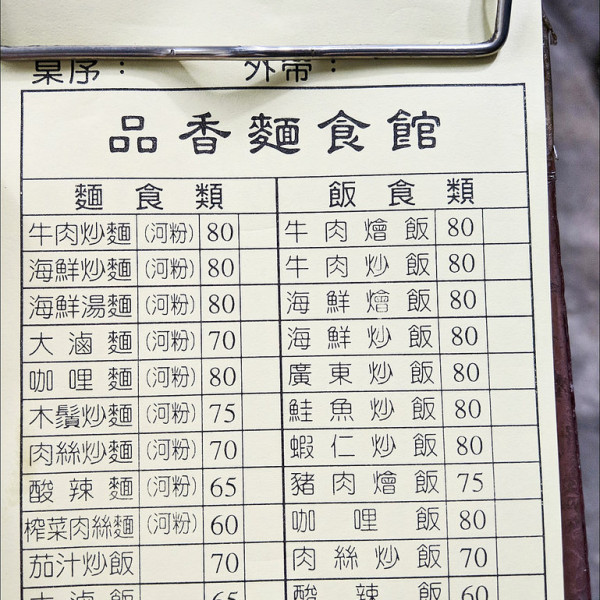 桌序： 外帶：
品香麵食館
麵食類 飯食類
牛肉炒麵 (河粉) 80 牛肉燴飯 80
海鮮炒麵 (河粉) 80 牛肉炒飯 80
海鮮湯麵 (河粉) 80 海鮮燴飯 80
大滷麵 (河粉) 70 海鮮炒飯 80
咖哩麵 (河粉) 80 廣東炒飯 80
木鬚炒麵 (河粉) 75 鮭魚炒飯 80
肉絲炒麵 (河粉) 70 蝦仁炒飯 80
酸辣麵 (河粉) 65 豬肉燴飯 75
榨菜肉絲麵 (河粉) 60 咖哩飯 80
茄汁炒飯 70 肉絲炒飯 70
大滷飯 65 酸辣飯 60